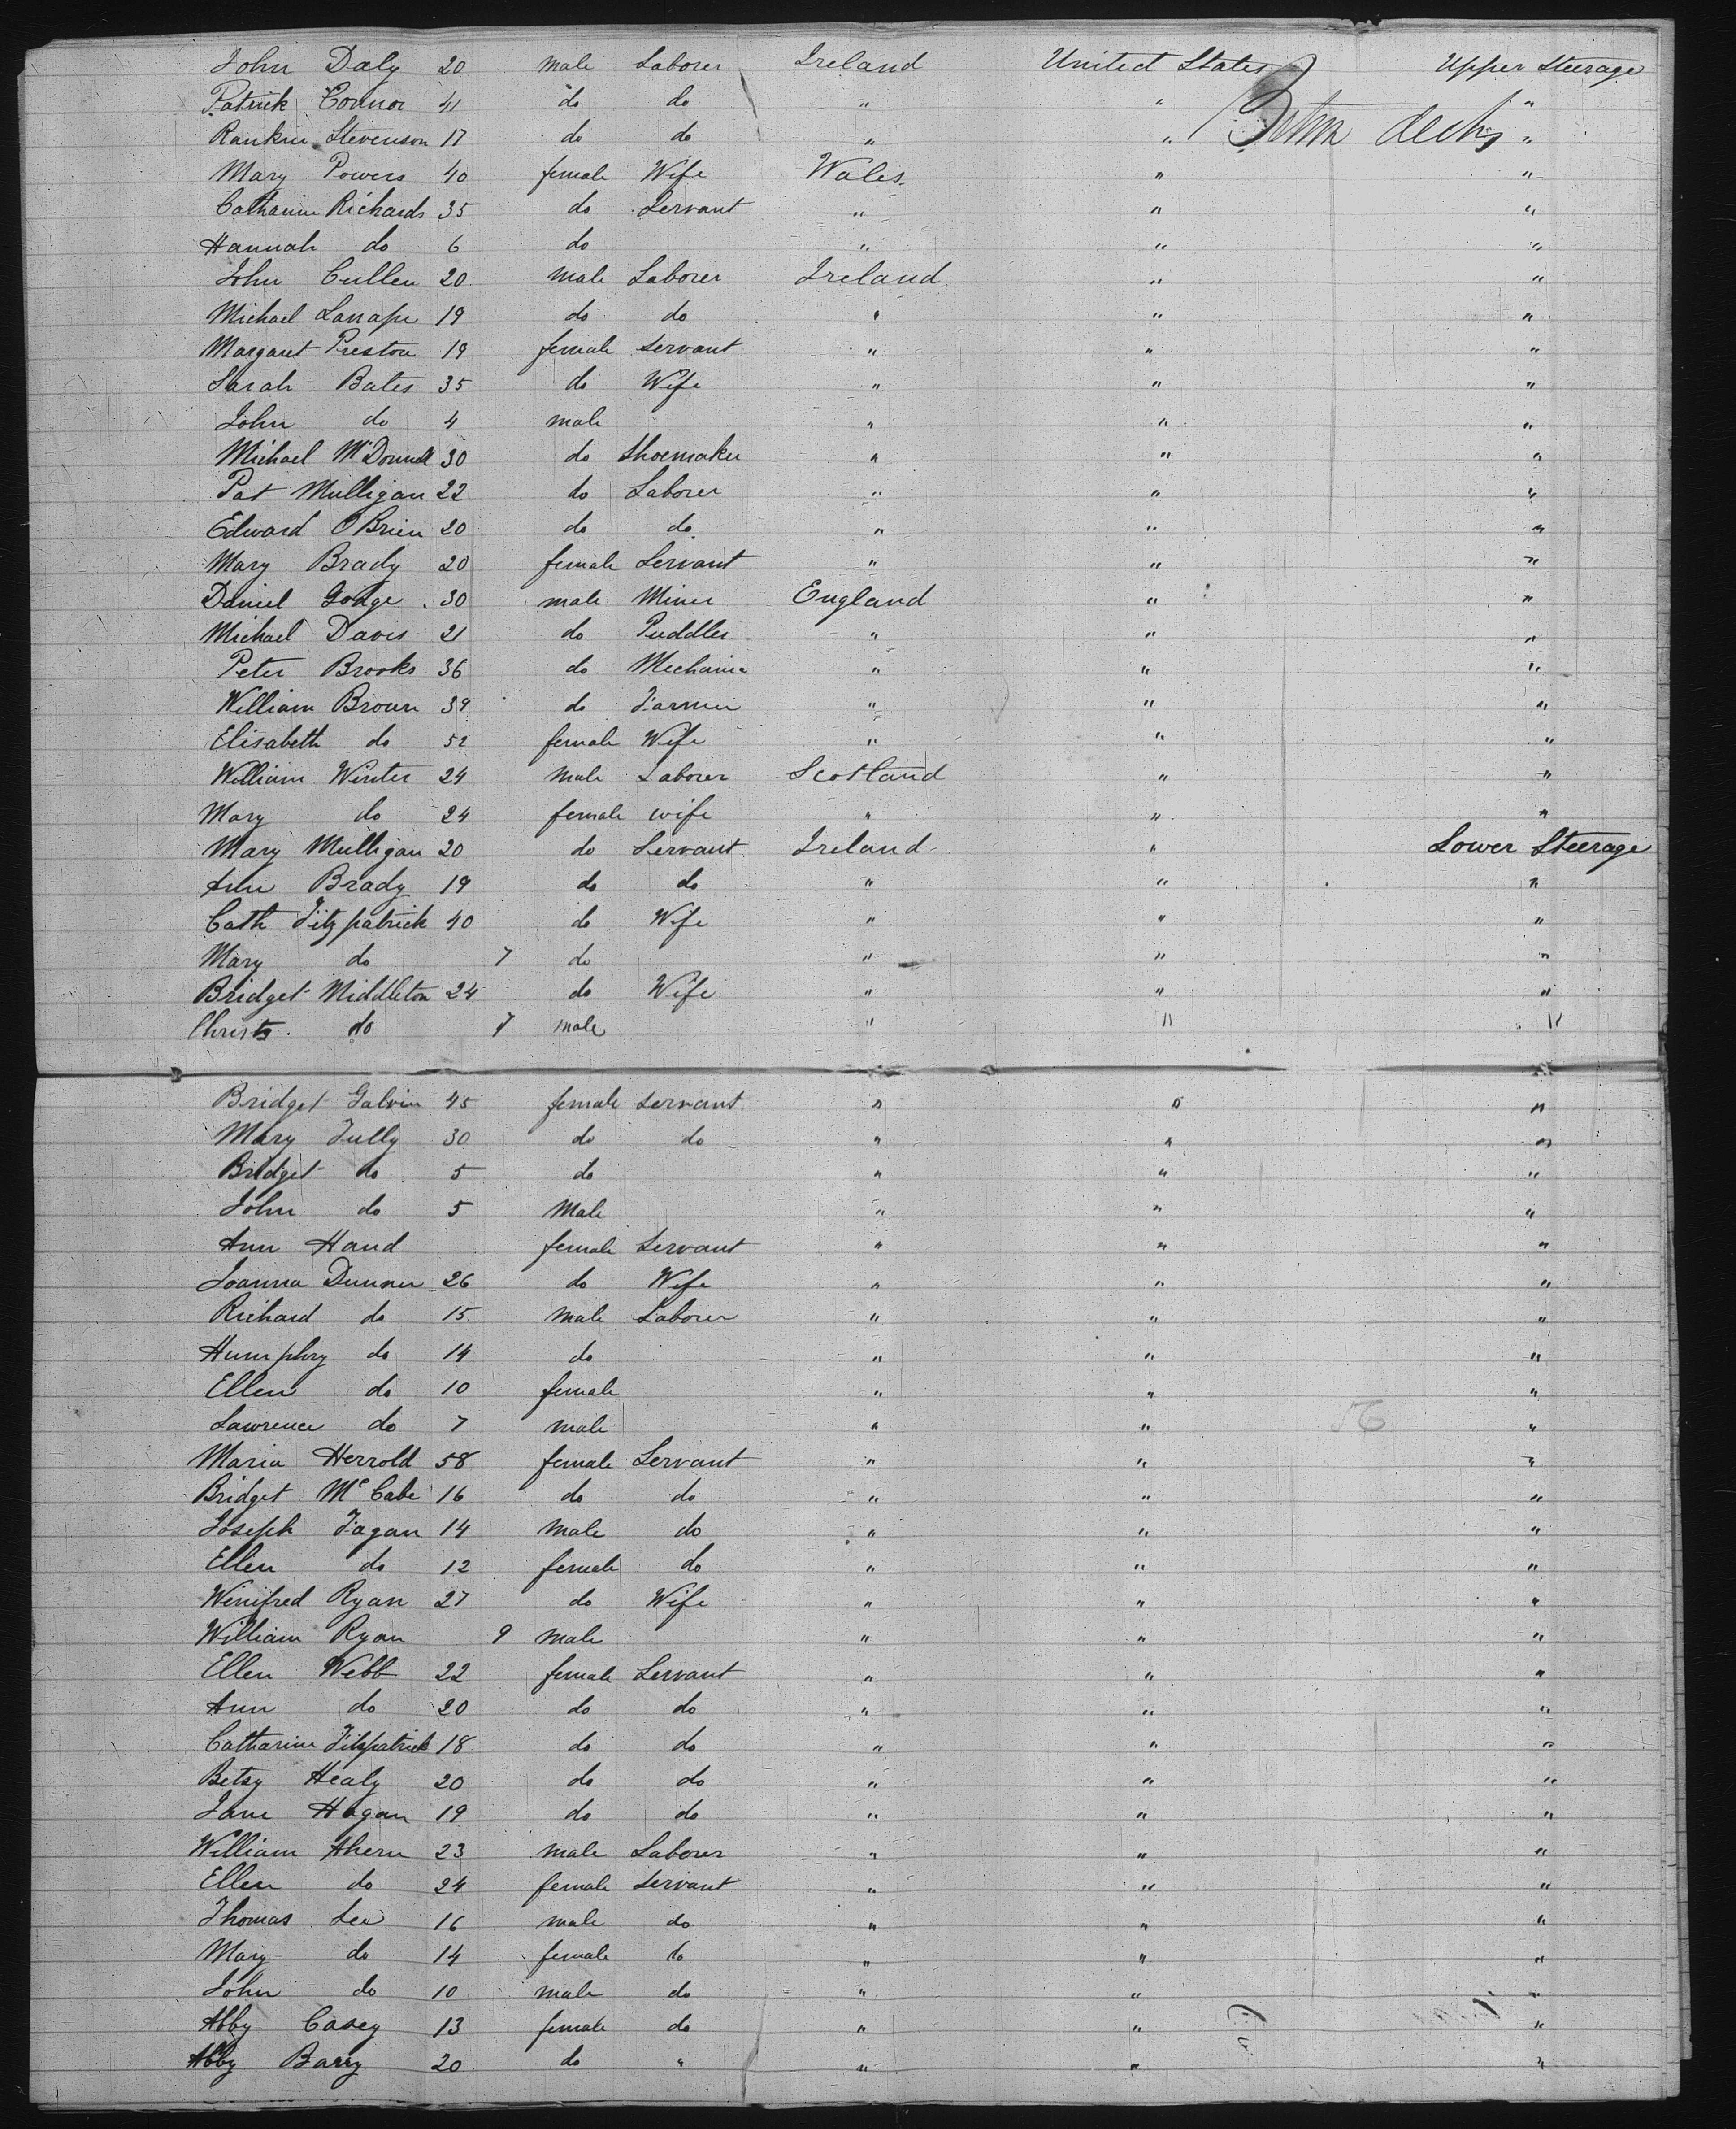 John Daly 20 male Laborer Ireland United States Upper Steerage
Patrick Connor 41 do do " " "
Rankin Stevenson 17 do do " " "
Between decks
Mary Powers 40 female Wife Wales " "
Catharine Richards 35 do Servant " " "
Hannah do 6 do " " "
John Cullen 20 male Laborer Ireland " "
Michael 19 do do " " "
Margaret Preston 19 female Servant " " "
Sarah Bates 35 do Wife " " "
John do 4 male " " "
Michael McDonnell 30 do Shoemaker " " "
Pat Mulligan 22 do Laborer " " "
Edward O'Brien 20 do do " " "
Mary Brady 20 female Servant " " "
Daniel Godge 30 male Miner England " "
Michael Davis 21 do Puddler " " "
Peter Brooks 36 do Mechanic " " "
William Brown 39 do Farmer " " "
Elisabeth do 52 female Wife " " "
William Winter 24 male Laborer Scotland " "
Mary do 24 female wife " " "
Mary Mulligan 20 do Servant Ireland " Lower Steerage
Ann Brady 19 do do " " "
Cath Fitzpatrick 40 do Wife " " "
Mary do 7 do " " "
Bridget Middleton 24 do Wife " " "
do 7 male " " "
Bridget Galvin 45 female servant " " "
Mary Tully 30 do do " " "
Bridget do 5 do " " "
John do 5 Male " " "
Ann Hand female Servant " " "
Joanna Dunner 26 do Wife " " "
Richard do 15 male Laborer " " "
Humphry do 14 do " " "
Ellen do 10 female " " "
Lawrence do 7 male " " "
Maria Herrold 58 female Servant " " "
Bridget McCabe 16 do do " " "
Joseph Fagan 14 male do " " "
Ellen do 12 female do " " "
Winifred Ryan 27 do Wife " " "
William Ryan 9 male " " "
Ellen Webb 22 female Servant " " "
Ann do 20 do do " " "
Catharine Fitzpatrick 18 do do " " "
Betsy Healy 20 do do " " "
Jane Hagan 19 do do " " "
William Ahern 23 male Laborer " " "
Ellen do 24 female Servant " " "
Thomas Lee 16 male do " " "
Mary do 14 female do " " "
John do 10 male do " " "
Abby Casey 13 female do " " "
Abby Barry 20 do " " " "